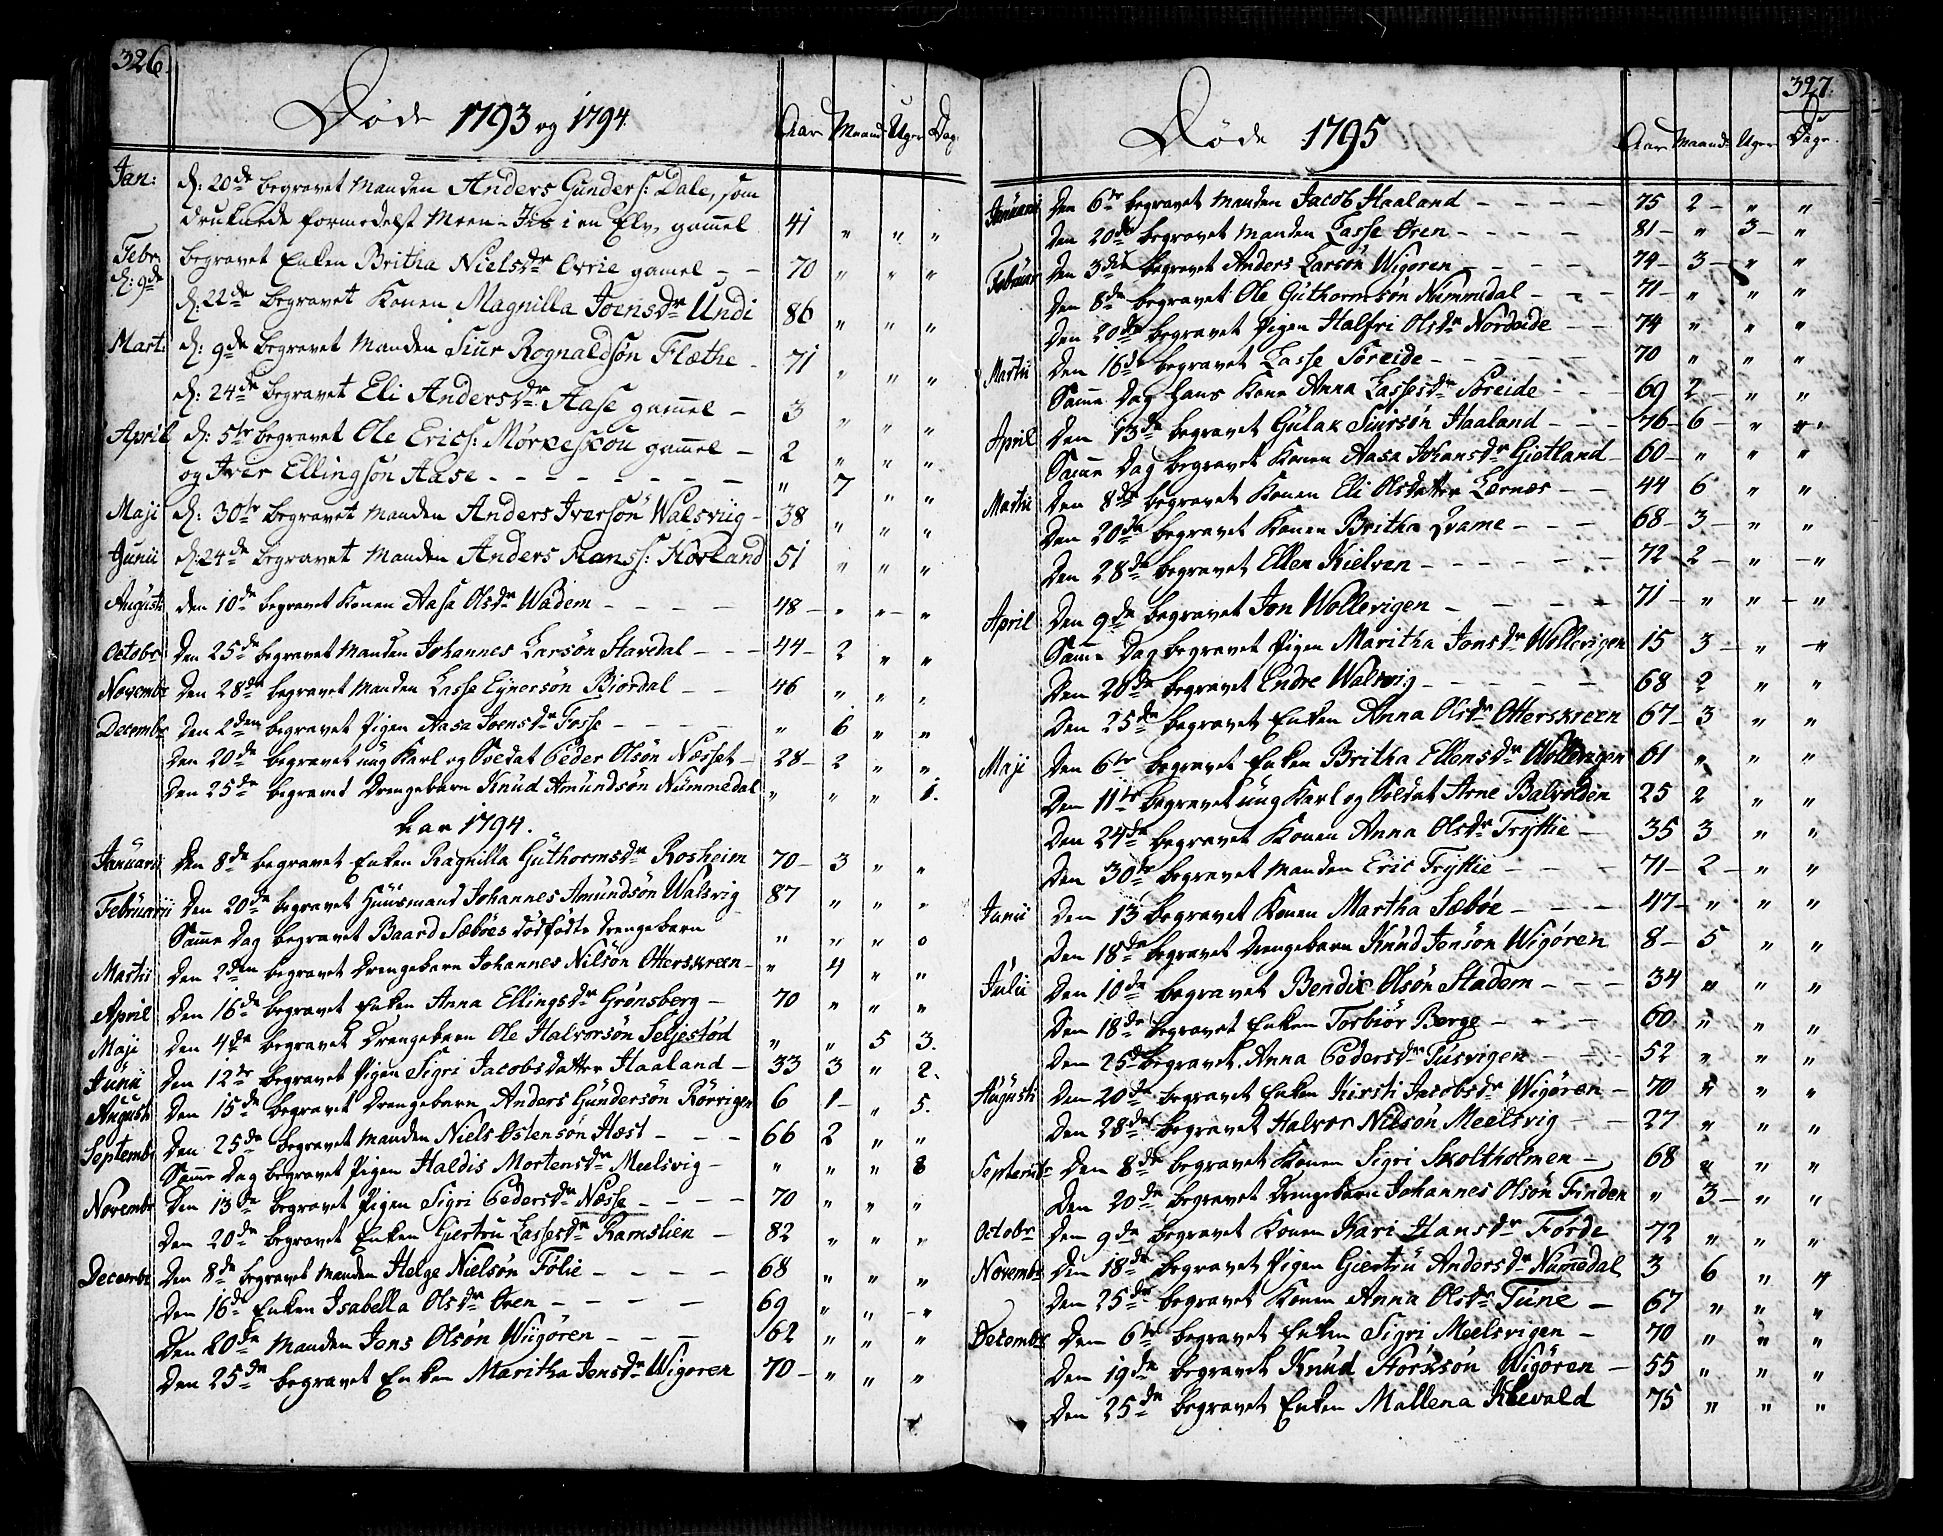 326
Døde 1793 og 1794.
Aar Maand Uger Dag
Jan: d: 20de begravet Manden Anders Gunders: Dale, som
druknede formedelst Meen-Iis i en Elv, gammel 41 " " "
Febr. d: 9de begravet Enken Britha Nielsdr Evrie gamel - - 70 " " "
d: 22de begravet Konen Magnilla Joensdr Undi 86 " " "
Mart: d: 9de begravet Manden Siur Rognaldsøn Flæthe - 71 " " "
d: 24de begravet Eli Andersdr Aase gammel - 3 " " "
April d: 5te begravet Ole Erics: Mørkeskou gammel - 2 " " "
og Iver Ellingsøn Aase - - - - - - - - " 7 " "
Maji d: 30te begravet Manden Anders Iversøn Walsviig - 38 " " "
Junii d: 24de begravet Manden Anders Hanss: Hovland 51 " " "
Augusti den 10de begravet Konen Aasa Olsdr Wadem - - - - 48 - " " "
Octobr Den 25de begravet Manden Johannes Larsøn Stavedal - - - 44 - 2 " "
Novembr Den 28de begravet Manden Lasse Eynersøn Biordal - - 46 " " "
Decembr Den 2den begravet Pigen Aasa Joensdr Fosse - - - - " 6 " "
Den 20de begravet ung Karl og Soldat Peder Olsøn Næsset - 28 - 2 " "
Den 25de begravet Drengebarn Knud Amundsøn Nummedal " " " 1.
Aar 1794.
Januarii Den 8de begravet Enken Ragnilla Guthormsdr Rosheim 70 - 3 " "
Februarii Den 20de begravet Huusmand Johannes Amundsøn Walsvig 87 " " "
Samme Dag begravet Baard Sæbøes dødfødte Drengebarn " " " 0
Martii Den 2den begravet Drengebarn Johannes Nilsøn Otterskreen - " 4 " "
April Den 16de begravet Enken Anna Ellingsdr Grønsberg - 70 " " "
Maji Den 4de begravet Drengebarn Ole Halvorsøn Seljestød " " 5 3.
Junii Den 12te begravet Pigen Sigri Jacobsdatter Haaland - 33 3 " 2.
Augusti Den 15de begravet Drengebarn Anders Gundersøn Rörvigen 6 1 - " 5.
Septembr Den 25de begravet Manden Niels Ostensøn Hæst - - - 66 2 " "
Samme Dag begravet Pigen Haldis Mortensdr Meelsvig - " " " 8
Novembr Den 13de begravet Pigen Sigri Pedersdr Næsse - - - - 70 " " "
Den 20de begravet Enken Giertru Lassesdr Ramslien - 82 " " "
Decembr Den 8de begravet Manden Helge Nielsøn Følie - - - - 68 " " "
Den 16de Enken Isabella Olsdr Øren - - - - 69 " " - "
Den 20de Manden Jens Olsøn Wiigøren - - - 62 " " "
Den 25de begravet Enken Maritha Jensdr Wigøren 70 - " " "
327.
Døde 1795
Aar Maand: Uger Dage
Januarii Den 6te begravet Manden Jacob Haaland - - - - - 75 2 - " "
Den 20de begravet Manden Lasse Øren - - - - 81 - " 3 - "
Februar Den 3die begravet Anders Larsøn Wigøren - - - - 74 - 3 - " "
Den 8de begravet Ole Guthormsøn Nummedal - - - 71 - " " "
Den 20de begravet Pigen Halfri Olsdr Nordeide - - 74 " " "
Martii Den 16de begravet Lasse Søreide - - - - - - 70 " " "
Samme Dag hans Kone Anna Lassesdr Søreide - - - 69 2 - " "
April Den 13de begravet Gulak Siursøn Haaland - - - 76 - 6 - " "
Samme Dag begravet Konen Aasa Johansdr Gietland - 60 - " " "
Martii Den 8de begravet Konen Eli Olsdatter Lernæs - - 44 6 " "
Den 20de begravet Konen Britha Qvame - - - 68 - 3 - " "
Den 28de begravet Ellen Kielven - - - - - - 72 - 2 - " - "
April Den 9de begravet Jon Wollevigen - - - - - 71 - " " - "
Samme Dag begravet Pigen Maritha Jonsdr Wollevigen 15 3 - " - "
Den 20de begravet Endre Walsvig - - - - - - 68 2 " "
Den 25de begravet Enken Anna Olsdr Otterskreen 67 - 3 " "
Maji Den 6te begravet Enken Britha Ellensdr Wollevigen 61 " " "
Den 11te begravet ung Karl og Soldat Arne Balvolden 25 2 " "
Den 24de begravet Konen Anna Olsdr Tryttie - 35 3 " "
Den 30te begravet Manden Eric Tryttie - - - - 71 - 2 - " "
Junii Den 13 begravet Konen Martha Sæbøe - - - - 47 - " " "
Den 18de begravet Drengebarn Knud Jensøn Wigøren 8 - 5 " "
Julii Den 10de begravet Bendix Olsøn Stadem - - - - 34 " " "
Den 18de begravet Enken Torbiör Berge - - - - 60 " " "
Den 25de begravet Anna Pedersdr Tusvigen - - - 52 " " "
Augusti Den 20de begravet Enken Kirsti Jacobsdr Wigøren - 70 " " "
Den 28de begravet Halvor Nilsøn Meelsvig - - - 27 " " "
Septembr Den 8de begravet Konen Sigri Skoltholmen - 68 " " "
Den 20de begravet Drengebarn Johannes Olsøn Finden " 3 - " "
Octobr Den 9de begravet Konen Kari Hansdr Förde 72 " " "
Novembr Den 18de begravet Pigen Giertru Andersdr Numedal 3 6 " "
Den 25de begravet Konen Anna Olsdr Tune - 67 " " "
Decembr Den 6te begravet Enken Sigri Meelsvigen - 70 " " "
Den 19de begravet Knud Storksøn Wigøren - 55 " " "
Den 25de begravet Enken Mallena Klævold 75 " " "